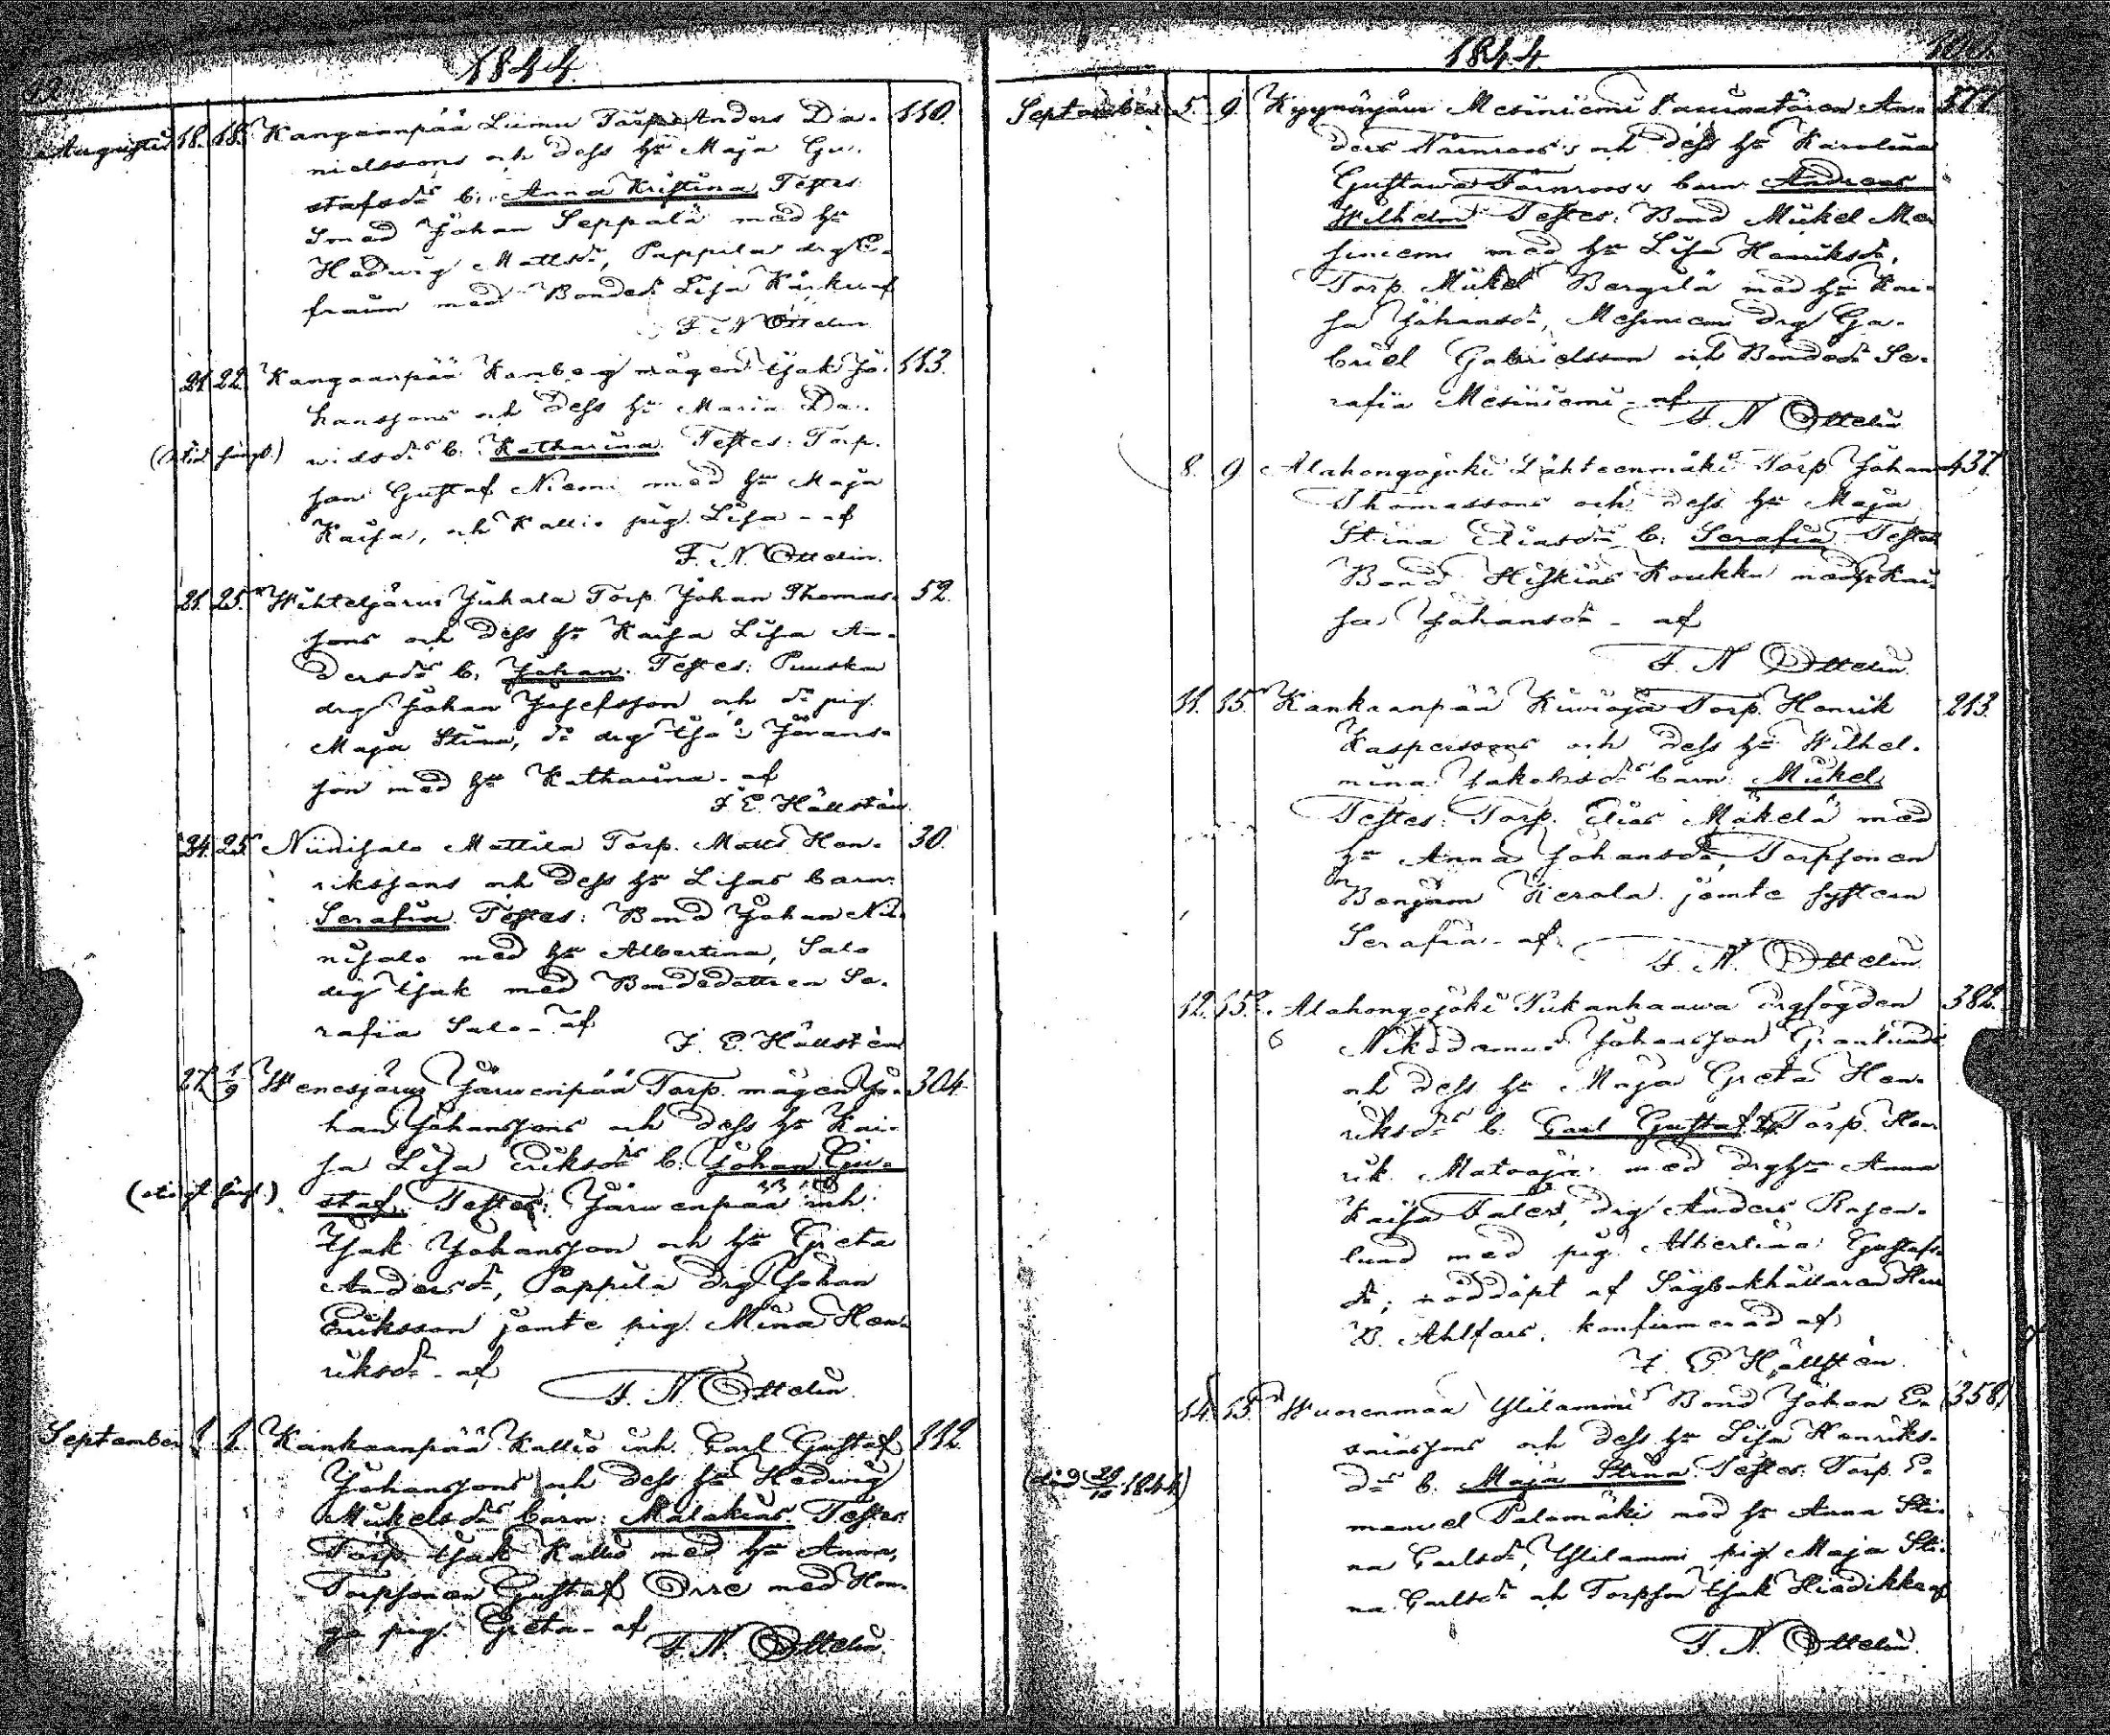 1844
Augusti 18. 18. Kangaanpää Liimu Torp. Anders Da- 110.
nielssons och dess hu Maja Gu-
stafsdrs b: Anna Kristina. Testes:
Smed Johan Seppälä med hu
Hedwig Mattsdr, Pappilas drg E-
fraim med Bonded. Lisa Karku af
F. N. Ottelin
21. 22. Kangaanpää Kamberg mågen Isak Jo- 113.
hanssons och dess hu Maria Da-
widsdrs b. Katharina. Testes: Torp.
son Gustaf Niemi med hu Maja
Kaisa, och Kallio pig. Lisa - af
F. N. Ottelin.
21. 25. Wihteljärvi Juhala Torp. Johan Thomas- 52.
sons och dess hu Kaisa Lisa An-
dersdrs b. Johan. Testes: Puuska
drg Johan Josefsson och do pig.
Maja Stina, do drg Jörans-
son med hu Katharina - af
F. E. Hällstén
24. 25. Niinisalo Mattila Torp. Matts Hen- 30.
rikssons och dess hu Lisas barn:
Serafia. Testes: Bond Johan Nii-
nisalo med hu Albertina, Salo
drg Isak med Bondedottren Se-
rafia Salo - af
F. E. Hällstén
27. 1/9 Wenesjärvi Järwenpää Torp. mågen Jo- 304.
han Johanssons och dess hu Kai-
sa Lisa Eriksdrs b. Johan Gu-
staf. Testes: Järwenpää inh.
Isak Johansson och hu Greta
Andersdr, Pappila drg Johan
Eriksson jemte pig. Mina Hen-
riksdr - af
F. N. Ottelin.
September 1. 1. Kankaanpää Kallio inh. Carl Gustaf 112.
Johanssons och dess hu Hedwig
Mikelsdrs barn: Malakias. Testes:
Torp. Isak Kallio med hu Anna,
Torpsonen Gustaf Orre med Hon-
go pig. Greta - af
F. N. Ottelin.
1844.
September 5. 9. Kyynärjärvi Mesiniemi An- 371.
ders och dess hu Karolina
Gustawa barn: Andreas
Wilhelm. Testes: Bond Mikel Me-
siniemi med hu Lisa Henriksdr,
Torp. Mikel Bergilä med hu Kai-
sa Johansdr, Mesiniemi drg Ga-
briel Gabrielsson och Bonded. Se-
rafia Mesiniemi - af
F. N. Ottelin
8. 9. Alahongojoki Lähteenmäki Torp. Johan 437.
Thomassons och dess hu Maja
Stina Eliasdrs b: Serafia. Testes:
Bond Hiskias Koukku med hu Kai-
sa Johansdr - af
F. N. Ottelin.
11. 15. Kankaanpää Kiwioja Torp. Henrik 213.
Kasperssons och dess hu Wilhel-
mina Jakobsdrs barn: Mikel.
Testes: Torp. Elias Mäkelä med
hu Anna Johansdr, Torpsonen
Benjam Kerola jemte systern
Serafia - af
F. N. Ottelin
12. 15. Alahongojoki Pukanhaawa drgfogden 382.
Nikodemus Johansson Granlunds
och dess hu Maja Greta Hen-
riksdrs b: Carl Gustaf. Torp. Hen-
rik Matooja med drghu Anna
Kaisa, drg Anders Rosen-
lund med pig. Albertina Gustafs-
dr; nöddöpt af Sågbokhållaren Hen
D. Ahlfors, konfirmerad af
F. E. Hällstén.
14. 15. Wuorenmaa Ylilammi Bond Johan E- 358.
saiassons och dess hu Lisa Henriks-
drs b. Maja Stina. Testes: Torp. E-
(död 29/10 1844)
manuel Palomäki med hu Anna Sti-
na Carlsdr, Ylilammi pig. Maja Sti-
na Carlsdr och Torpson Isak Hiedikko af
F. N. Ottelin.